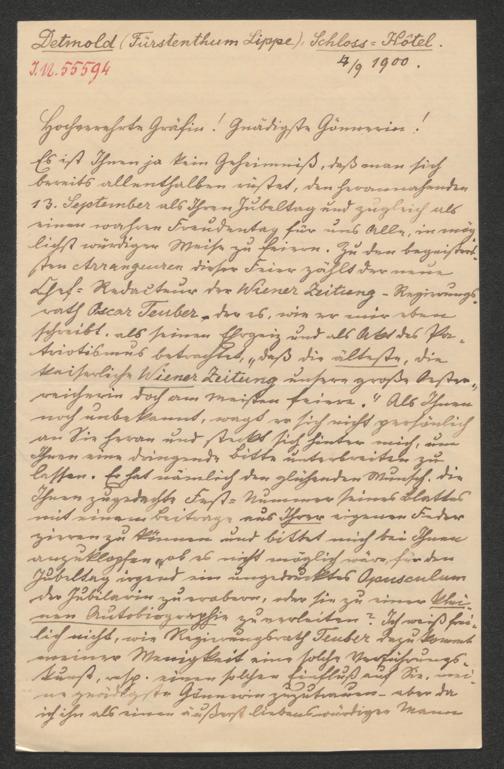 Detmold (Fürstenthum Lippe), Schloss=Hôtel.
I.N. 55594
4/9 1900.
Hochverehrte Gräfin! Gnädigste Gönnerin!
Es ist Ihnen ja kein Geheimniß, daß man sich
bereits allenthalben rüstet, den herannahenden
13. September als Ihren Jubeltag und zugleich als
einen wahren Freudentag für uns Alle, in mög
lichst würdiger Weise zu feiern. Zu den begeister
sten Arrangeuren dieser Feier zählt der neue
Chef=Redacteur der Wiener Zeitung – Regierungs
rath Oscar Teuber, der es, wie er mir eben
schreibt, als seinen Ehrgeiz und als Akt des Pa=
triotismus betrachtet, „daß die älteste, die
kaiserliche Wiener Zeitung unsere große Oester=
reicherin doch am meisten feiere." Als Ihnen
noch unbekannt, wagt er sich nicht persönlich
an Sie heran und steckt sich hinter mich, um
Ihnen eine dringende Bitte unterbreiten zu
lassen. Er hat nämlich den glühenden Wunsch, die
Ihnen zugedachte Fest=Nummer seines Blattes
mit einem Beitrage aus Ihrer eigenen Feder
zieren zu können und bittet mich bei Ihnen
anzuklopfen, „ob es nicht möglich wäre, für den
Jubeltag irgend ein ungedrucktes Opusculum
der Jubilarin zu erobern, oder sie zu einer klei=
nen Autobiographie zu verleiten"? Ich weiß frei=
lich nicht, wie Regierungsrath Teuber dazu kommt
meiner Wenigkeit eine solche Verführungs=
kunst, resp. einen solchen Einfluß auf Sie, mei=
ne gnädigste Gönnerin zuzutrauen – aber da
ich ihn als einen äußerst liebenswürdigen Mann